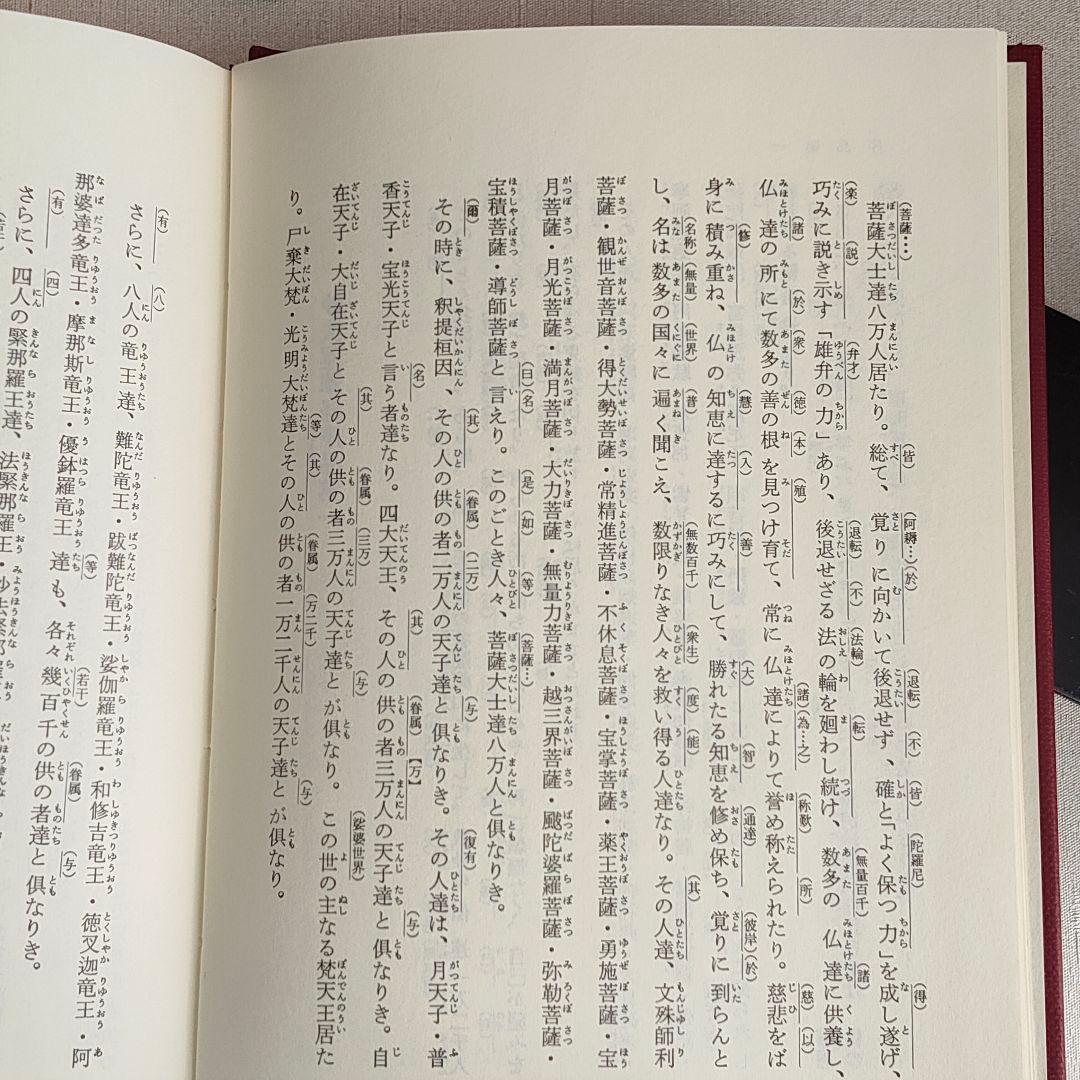 菩薩大士達八万人居たり。総て、覚りに向かいて後退せず、確と「よく保つ力」を成し遂げ、
巧みに説き示す「雄弁の力」あり、後退せざる法の輪を廻わし続け、数多の仏達に供養し、
仏達の所にて数多の善の根を見つけ育て、常に仏達によりて誉め称えられたり。慈悲をば
身に積み重ね、仏の知恵に達するに巧みにして、勝れたる知恵を修め保ち、覚りに到らんと
し、名は数多の国々に遍く聞こえ、数限りなき人々を救い得る人達なり。その人達、文殊師利
菩薩・観世音菩薩・得大勢菩薩・常精進菩薩・不休息菩薩・宝掌菩薩・薬王菩薩・勇施菩薩・宝
月菩薩・月光菩薩・満月菩薩・大力菩薩・無量力菩薩・越三界菩薩・颰陀婆羅菩薩・弥勒菩薩・
宝積菩薩・導師菩薩と言えり。このごとき人々、菩薩大士達八万人と俱なりき。
その時に、釈提桓因、その人の供の者二万人の天子達と俱なりき。その人達は、月天子・普
香天子・宝光天子と言う者達なり。四大天王、その人の供の者三万人の天子達と俱なりき。自
在天子・大自在天子とその人の供の者三万人の天子達とが俱なり。この世の主なる梵天王居た
り。尸棄大梵・光明大梵達とその人の供の者一万二千人の天子達とが俱なり。
さらに、八人の竜王達、難陀竜王・跋難陀竜王・娑伽羅竜王・和修吉竜王・徳叉迦竜王・阿
那婆達多竜王・摩那斯竜王・優鉢羅竜王達も、各々幾百千の供の者達と俱なりき。
さらに、四人の緊那羅王達、法緊那羅王・妙法緊那羅